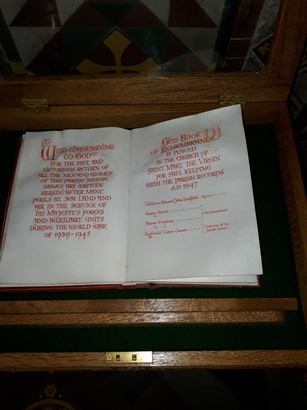 With Thanksgiving
to God
for the safe and
victorious return of
all the men and women
of this parish whose
names are written
herein, after many
perils by sea, land and
air in the service of
His Majesty's Forces
and Auxiliary Units
during the World War
of 1939-1945
This Book
of Remembrance
is placed
in the Church of
Saint Mary the Virgin
for safe keeping
with the parish records
A.D 1947
William Edward John
Rector
Churchwardens
Reginald Victor